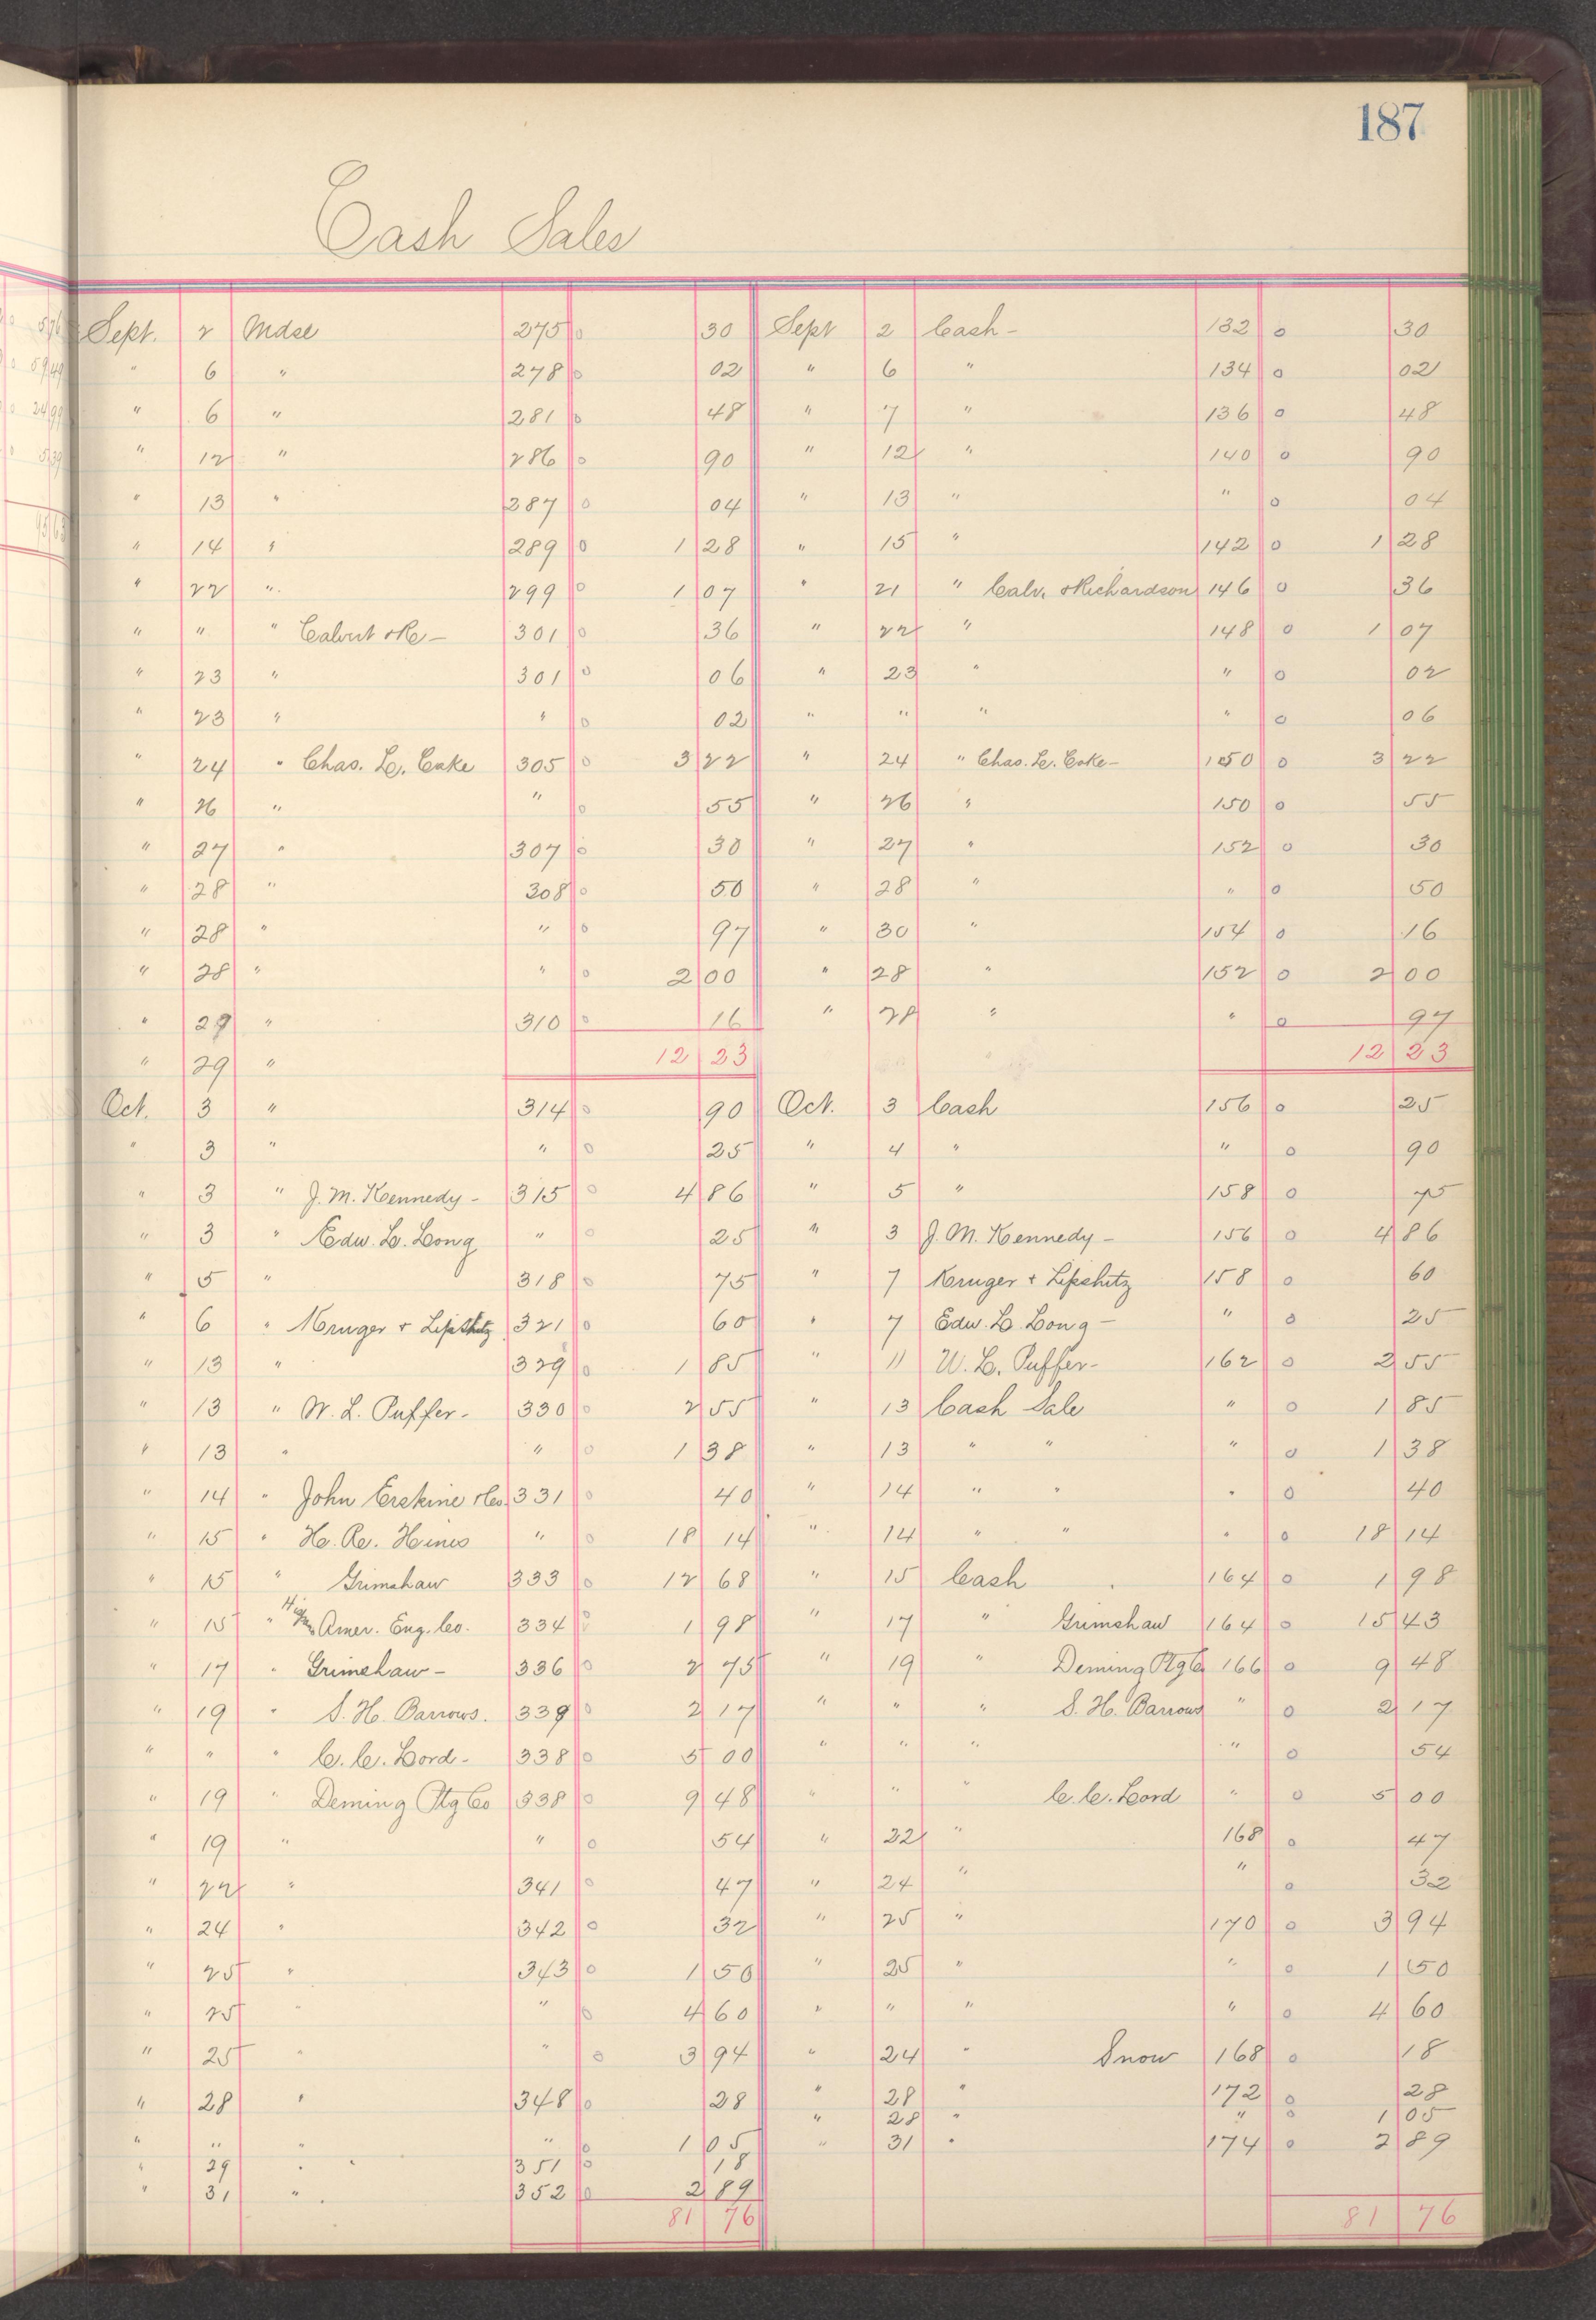 187
Cash Sales
Sept. 2 Mdse 275 0 30 Sept 2 Cash - 132 0 30
" 6 " 278 0 02 " 6 " 134 0 02
" 6 " 281 0 48 " 7 " 136 0 48
" 12 " 286 0 90 " 12 " 140 0 90
" 13 " 287 0 04 " 13 " " 0 04
" 14 " 289 0 1 28 " 15 " 142 0 1 28
" 22 " 299 0 1 07 " 21 " Calv. & Richardson 146 0 36
" " " Calvert & R - 301 0 36 " 22 " 148 0 1 07
" 23 " 301 0 06 " 23 " " 0 02
" 23 " " 0 02 " " " " 0 06
" 24 " Chas. L. Coke 305 0 3 22 " 24 " Chas. L. Coke - 150 0 3 22
" 26 " " 0 55 " 26 " 150 0 55
" 27 " 307 0 30 " 27 " 152 0 30
" 28 " 308 0 50 " 28 " " 0 50
" 28 " " 0 97 " 30 " 154 0 16
" 28 " " 0 2 00 " 28 " 152 0 2 00
" 29 " 310 0 16 " 28 " " 0 97
" 29 " 12 23 12 23
Oct. 3 " 314 0 90 Oct. 3 Cash 156 0 25
" 3 " " 0 25 " 4 " " 0 90
" 3 " J. M. Kennedy - 315 0 4 86 " 5 " 158 0 75
" 3 " Edw. L. Long " 0 25 " 3 J. M. Kennedy - 156 0 4 86
" 5 " 318 0 75 " 7 Kruger + Lipshitz 158 0 60
" 6 " Kruger + Lipshitz 321 0 60 " 7 Edw. L. Long - " 0 25
" 13 " 329 0 1 85 " 11 W. L. Puffer - 162 0 2 55
" 13 " W. L. Puffer - 330 0 2 55 " 13 Cash Sale " 0 1 85
" 13 " " 0 1 38 " 13 " " " 0 1 38
" 14 " John Erskine & Co. 331 0 40 " 14 " " " 0 40
" 15 " H. R. Hines " 0 18 14 " 14 " " " 0 18 14
" 15 " Grimshaw 333 0 12 68 " 15 Cash 164 0 1 98
" 15 " Amer. Eng. Co. 334 0 1 98 " 17 " Grimshaw 164 0 15 43
" 17 " Grimshaw - 336 0 2 75 " 19 " Deming Ptg Co 166 0 9 48
" 19 " S. H. Barrows. 339 0 2 17 " " " S. H. Barrows " 0 2 17
" " " C. C. Lord - 338 0 5 00 " " " " 0 54
" 19 " Deming Ptg Co 338 0 9 48 " " " C. C. Lord " 0 5 00
" 19 " " 0 54 " 22 " 168 0 47
" 22 " 341 0 47 " 24 " " 0 32
" 24 " 342 0 32 " 25 " 170 0 3 94
" 25 " 343 0 1 50 " 25 " " 0 1 50
" 25 " " 0 4 60 " " " " 0 4 60
" 25 " " 0 3 94 " 24 " Snow 168 0 18
" 28 " 348 0 28 " 28 " 172 0 28
" 28 " " 0 1 05
" " " " 0 1 05 " 31 " 174 0 2 89
" 29 " " 351 0 18
" 31 " 352 0 2 89
81 76 81 76